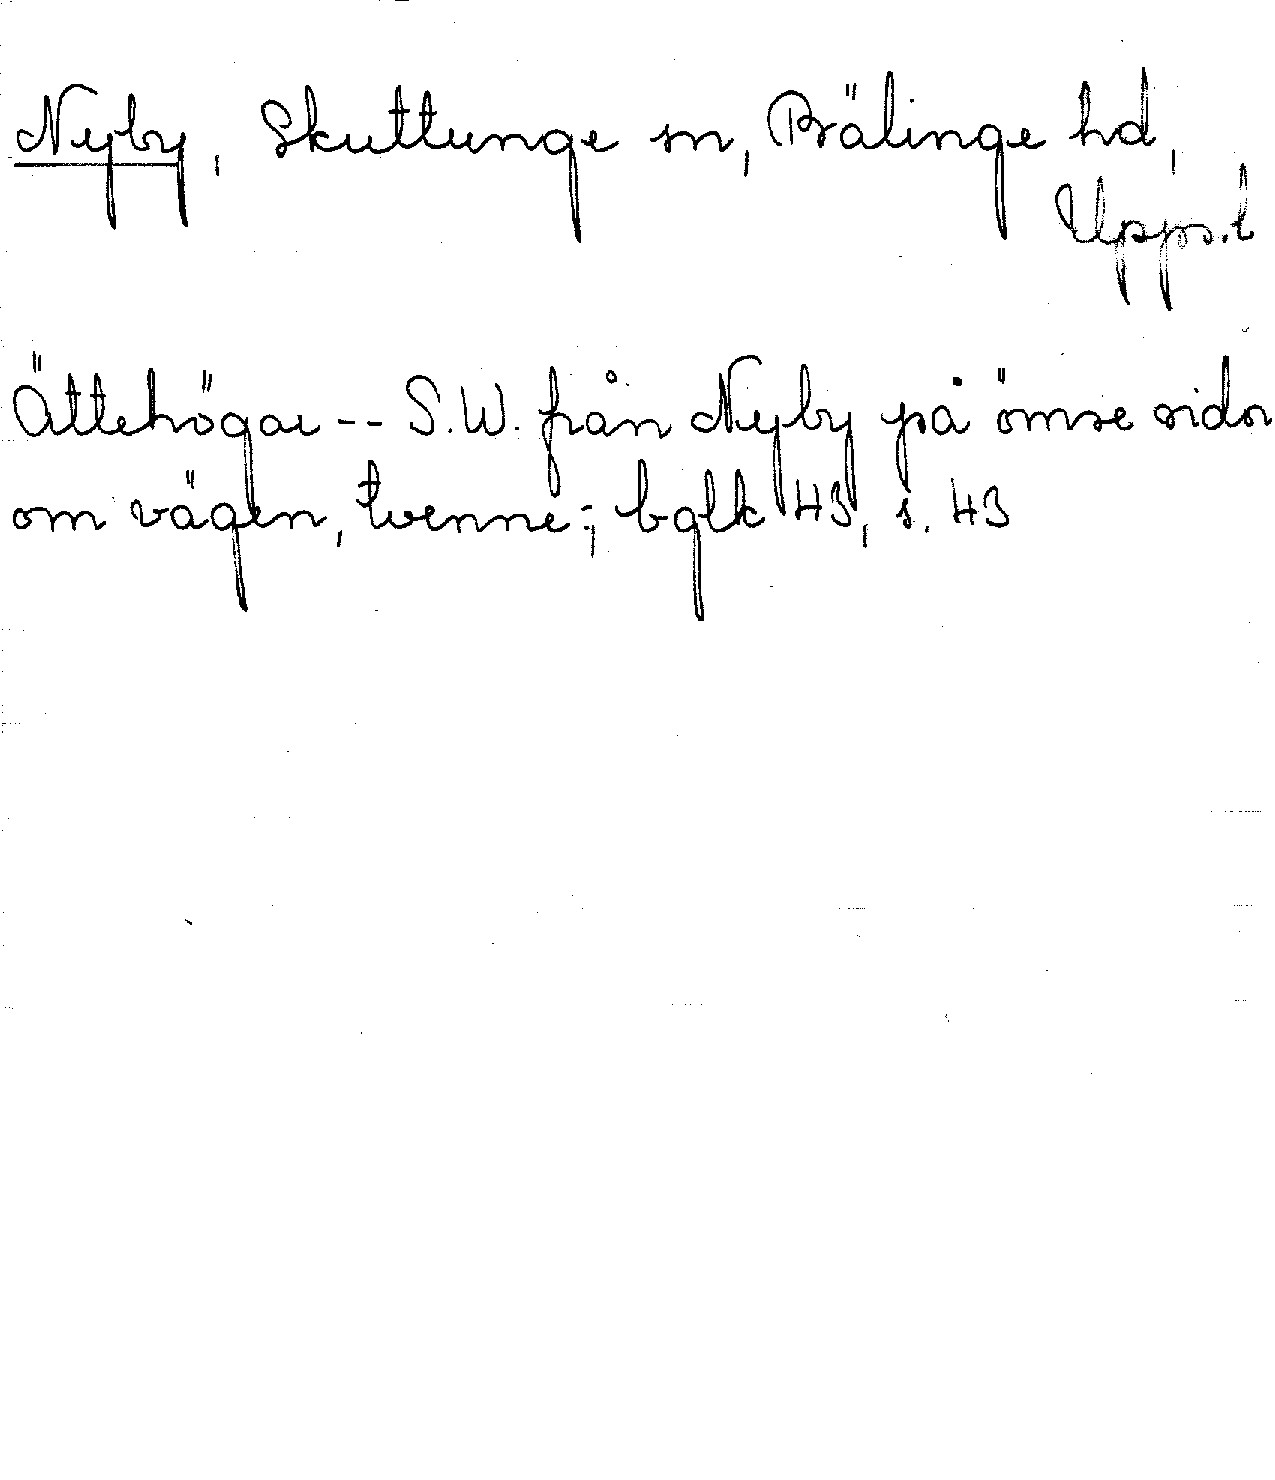 Nyby, Skuttunge sn, Bälinge hd,
Upps.l
Ättehögar -- S.W. från Nyby på ömse sidor
om vägen, tvenne; bglk 43, s. 43